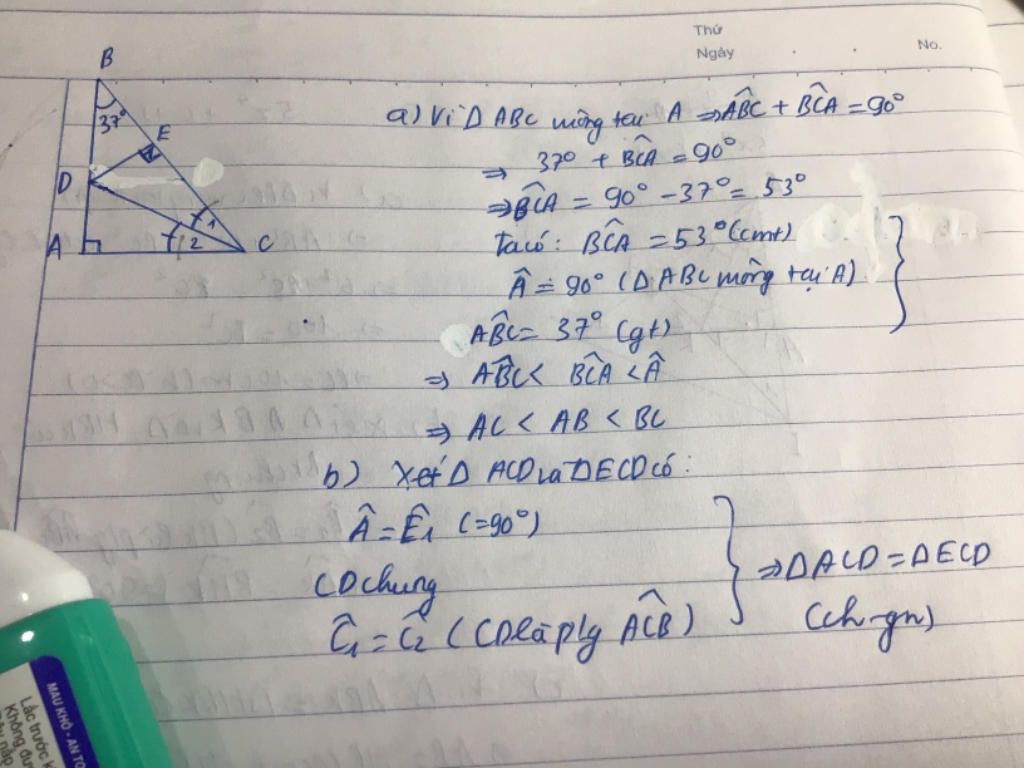 Thứ
Ngày
No.
B
37°
E
D
1
A
2
C
a) Vì Δ ABC vuông tại A ⇒ ABĈ + BĈA = 90°
⇒ 37° + BĈA = 90°
⇒ BĈA = 90° - 37° = 53°
Ta có: BĈA = 53° (cmt)
Â = 90° (Δ ABC vuông tại A)
AB̂C = 37° (gt)
⇒ AB̂C < BĈA < Â
⇒ AC < AB < BC
b) Xét Δ ACD và Δ ECD có:
Â = Ê₁ (=90°)
CD chung
Ĉ₁ = Ĉ₂ (CD là p/g AĈB)
⇒ Δ ACD = Δ ECD
(ch-gn)
MAU KHÔ - AN TO
Lắc trước k
Không đư